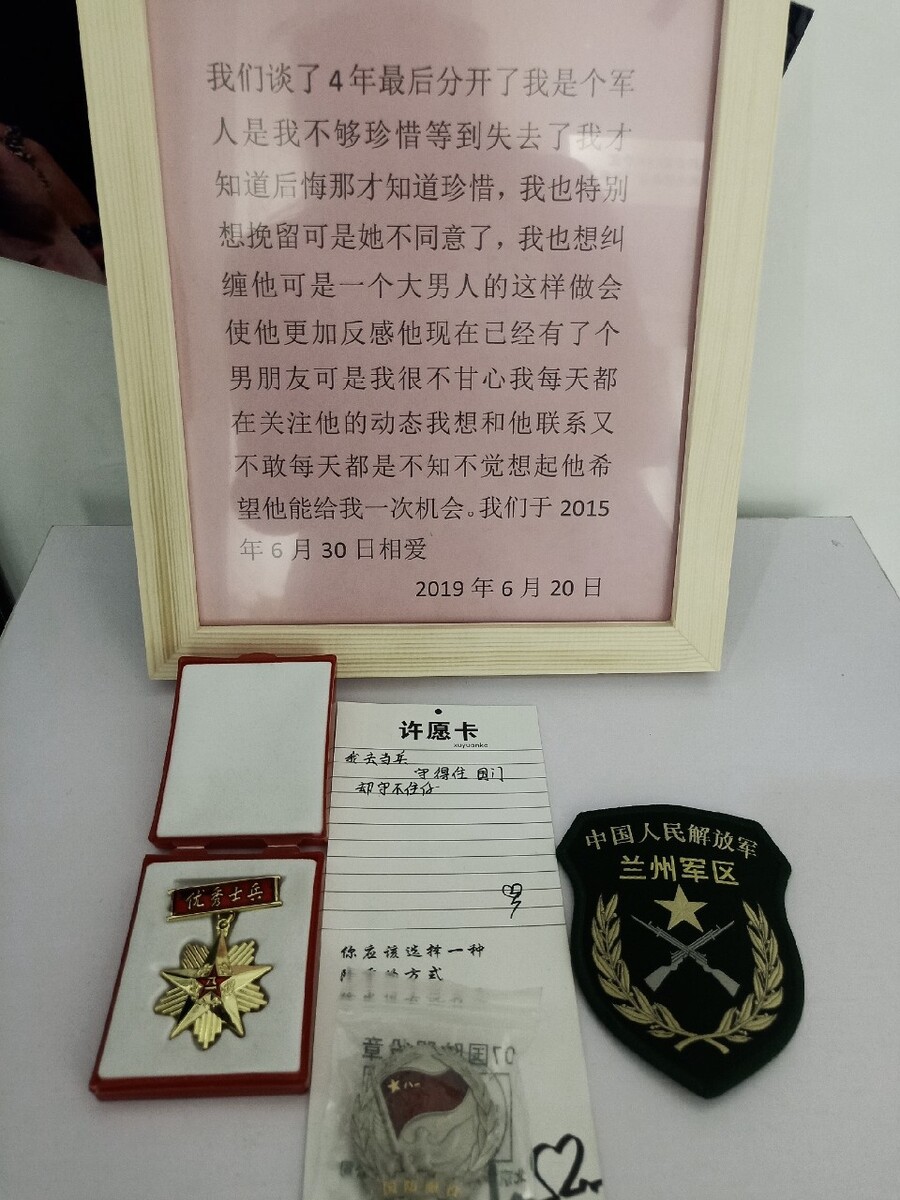 我们谈了 4 年最后分开了我是个军
人是我不够珍惜等到失去了我才
知道后悔那才知道珍惜，我也特别
想挽留可是她不同意了，我也想纠
缠他可是一个大男人的这样做会
使他更加反感他现在已经有了个
男朋友可是我很不甘心我每天都
在关注他的动态我想和他联系又
不敢每天都是不知不觉想起他希
望他能给我一次机会。我们于 2015
年 6 月 30 日相爱
2019 年 6 月 20 日
许愿卡
xuyuanka
我去当兵
守得住 国门
却守不住你
你应该选择一种
方式
优秀士兵
八一
中国人民解放军
兰州军区
07国防服役章
八一